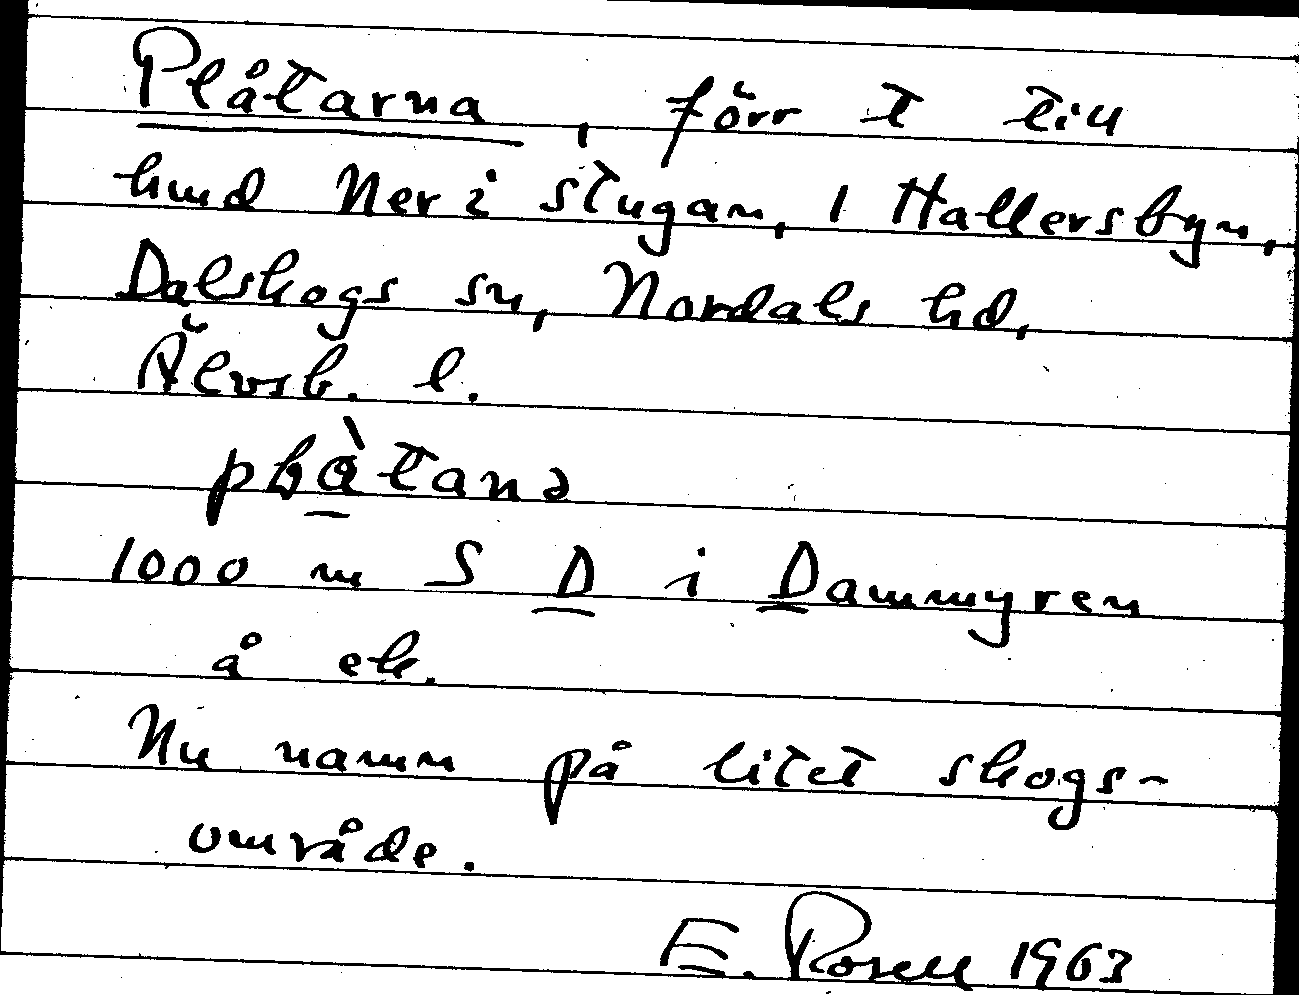 Plåtarna, förr t till
hmd Ner i stugan, 1 Hallersbyn,
Dalskogs sn, Nordals hd,
Älvsb. l.
1000 m S D i Dammyren
å ek.
Nu namn på litet skogs-
område.
E. Rosell 1963